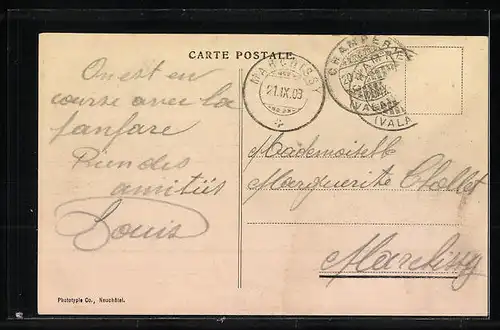 CARTE POSTALE
On est en
course avec la
fanfare
Rien des
amitiés
Louis
MARCHISSY
21.IX.09
CHAMPERY
20.IX
(VALAI
(VALA
Mademoiselle
Marguerite Chollet
Marchissy
Phototypie Co., Neuchâtel.